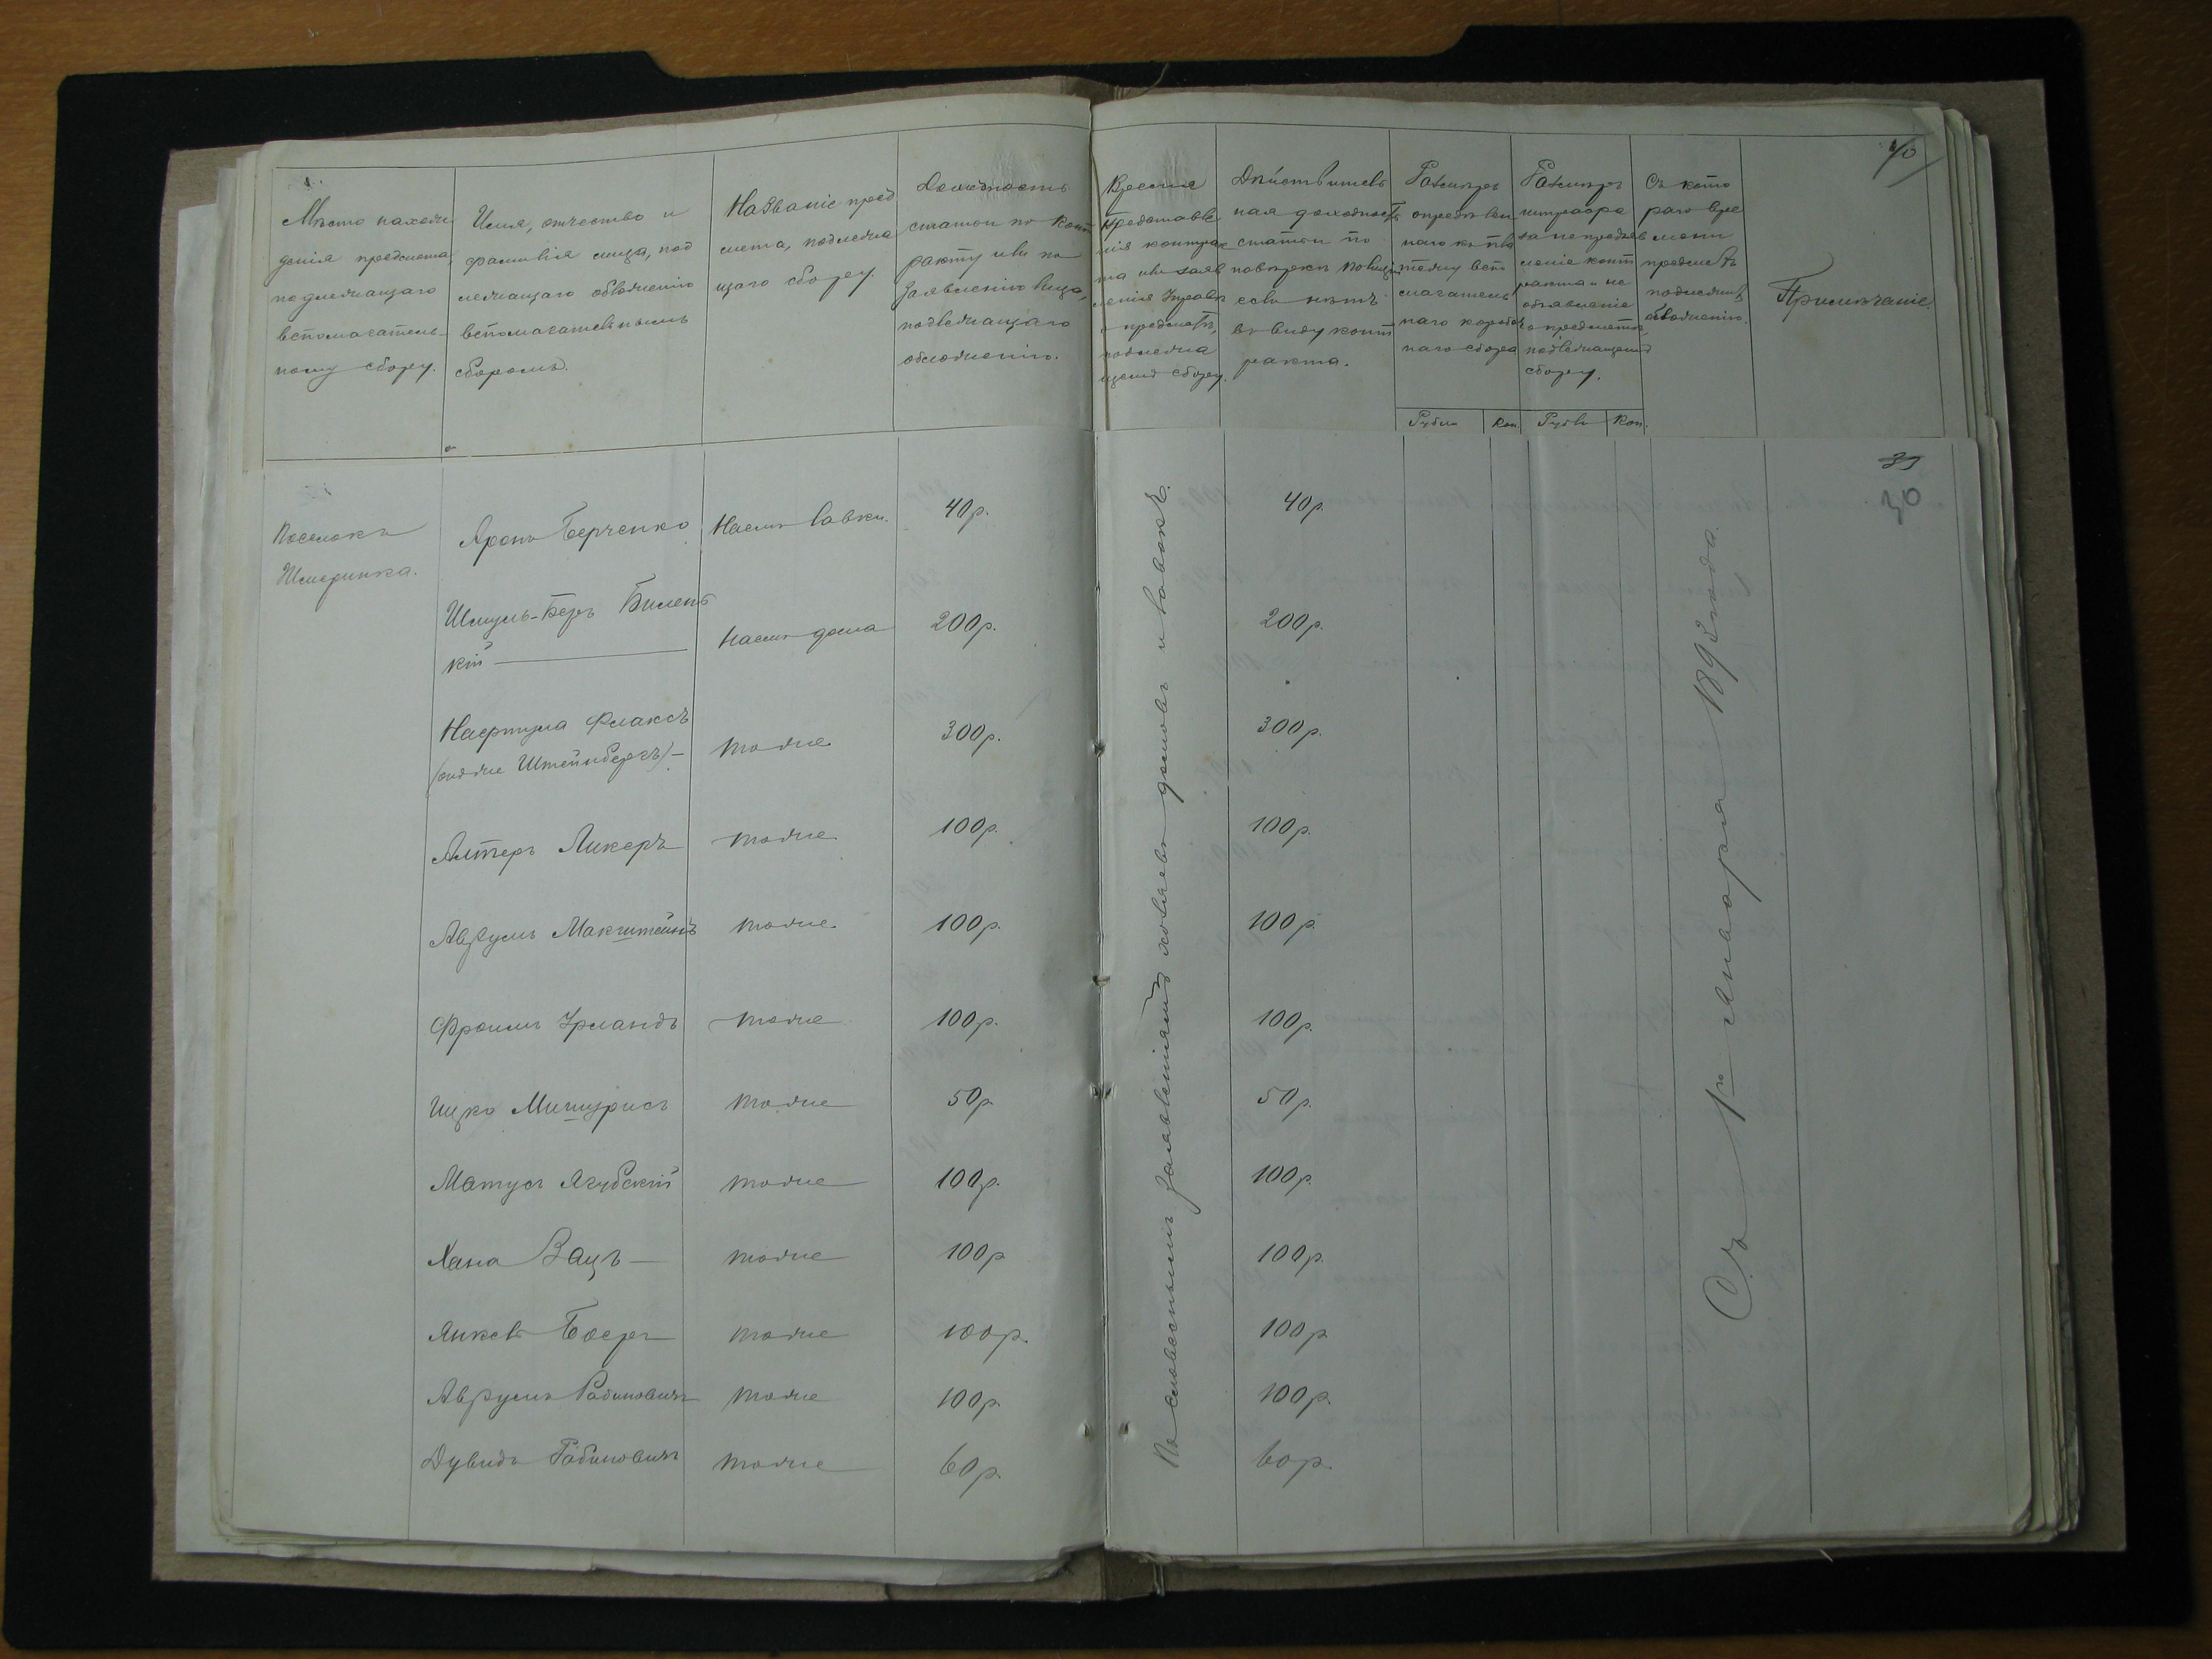 Мѣсто нахож
денія предмета,
подлежащаго
вспомогатель-
ному сбору.
Имя, отчество и
фамилія лица, под
лежащаго обложенію
вспомогательнымъ
сборомъ.
Названіе пред
мета, подлежа
щаго сбору.
Доходность
статьи по конт
ракту или по
заявленію лица,
подлежащаго
обложенію.
Время
представле
нія контрак
та или заяв
ленія Управѣ
о предметѣ,
подлежа
щемъ сбору.
Дѣйствитель
ная доходность
статьи по
повѣркѣ полиціи
если нѣтъ
въ виду конт
ракта.
Размѣръ
опредѣлен
наго къ пла
тежу вспо
могатель
наго коробоч
наго сбора
Рубли Коп.
Размѣръ
штрафа
за непредъяв
леніе конт
ракта и не
объявленіе
о предметѣ,
подлежащемъ
сбору.
Рубли Коп.
Съ кото
раго вре
мени
предметъ
подлежитъ
обложенію.
Примѣчаніе.
40
39
30
Поселокъ
Жмеринка.
Аронъ Берченко Наемъ лавки. 40 р. 40 р.
Шмуль-Беръ Биленъ
кій Наемъ дома 200 р. 200 р.
Нафтула Флаксъ
(онъ же Штейнбергъ) — тоже 300 р. 300 р.
Алтеръ Ликеръ тоже 100 р. 100 р.
Аврумъ Макштейнъ тоже 100 р. 100 р.
Фроимъ Урландъ тоже 100 р. 100 р.
Ицко Мишурисъ тоже 50 р. 50 р.
Матусъ Ягубскій тоже 100 р. 100 р.
Хана Вацъ — тоже 100 р. 100 р.
Янкель Боеръ тоже 100 р. 100 р.
Аврумъ Рабиновичъ тоже 100 р. 100 р.
Дувидъ Рабиновичъ тоже 60 р. 60 р.
По словеснымъ заявленіямъ хозяевъ домовъ и лавокъ.
Съ 1го Января 1892 года.